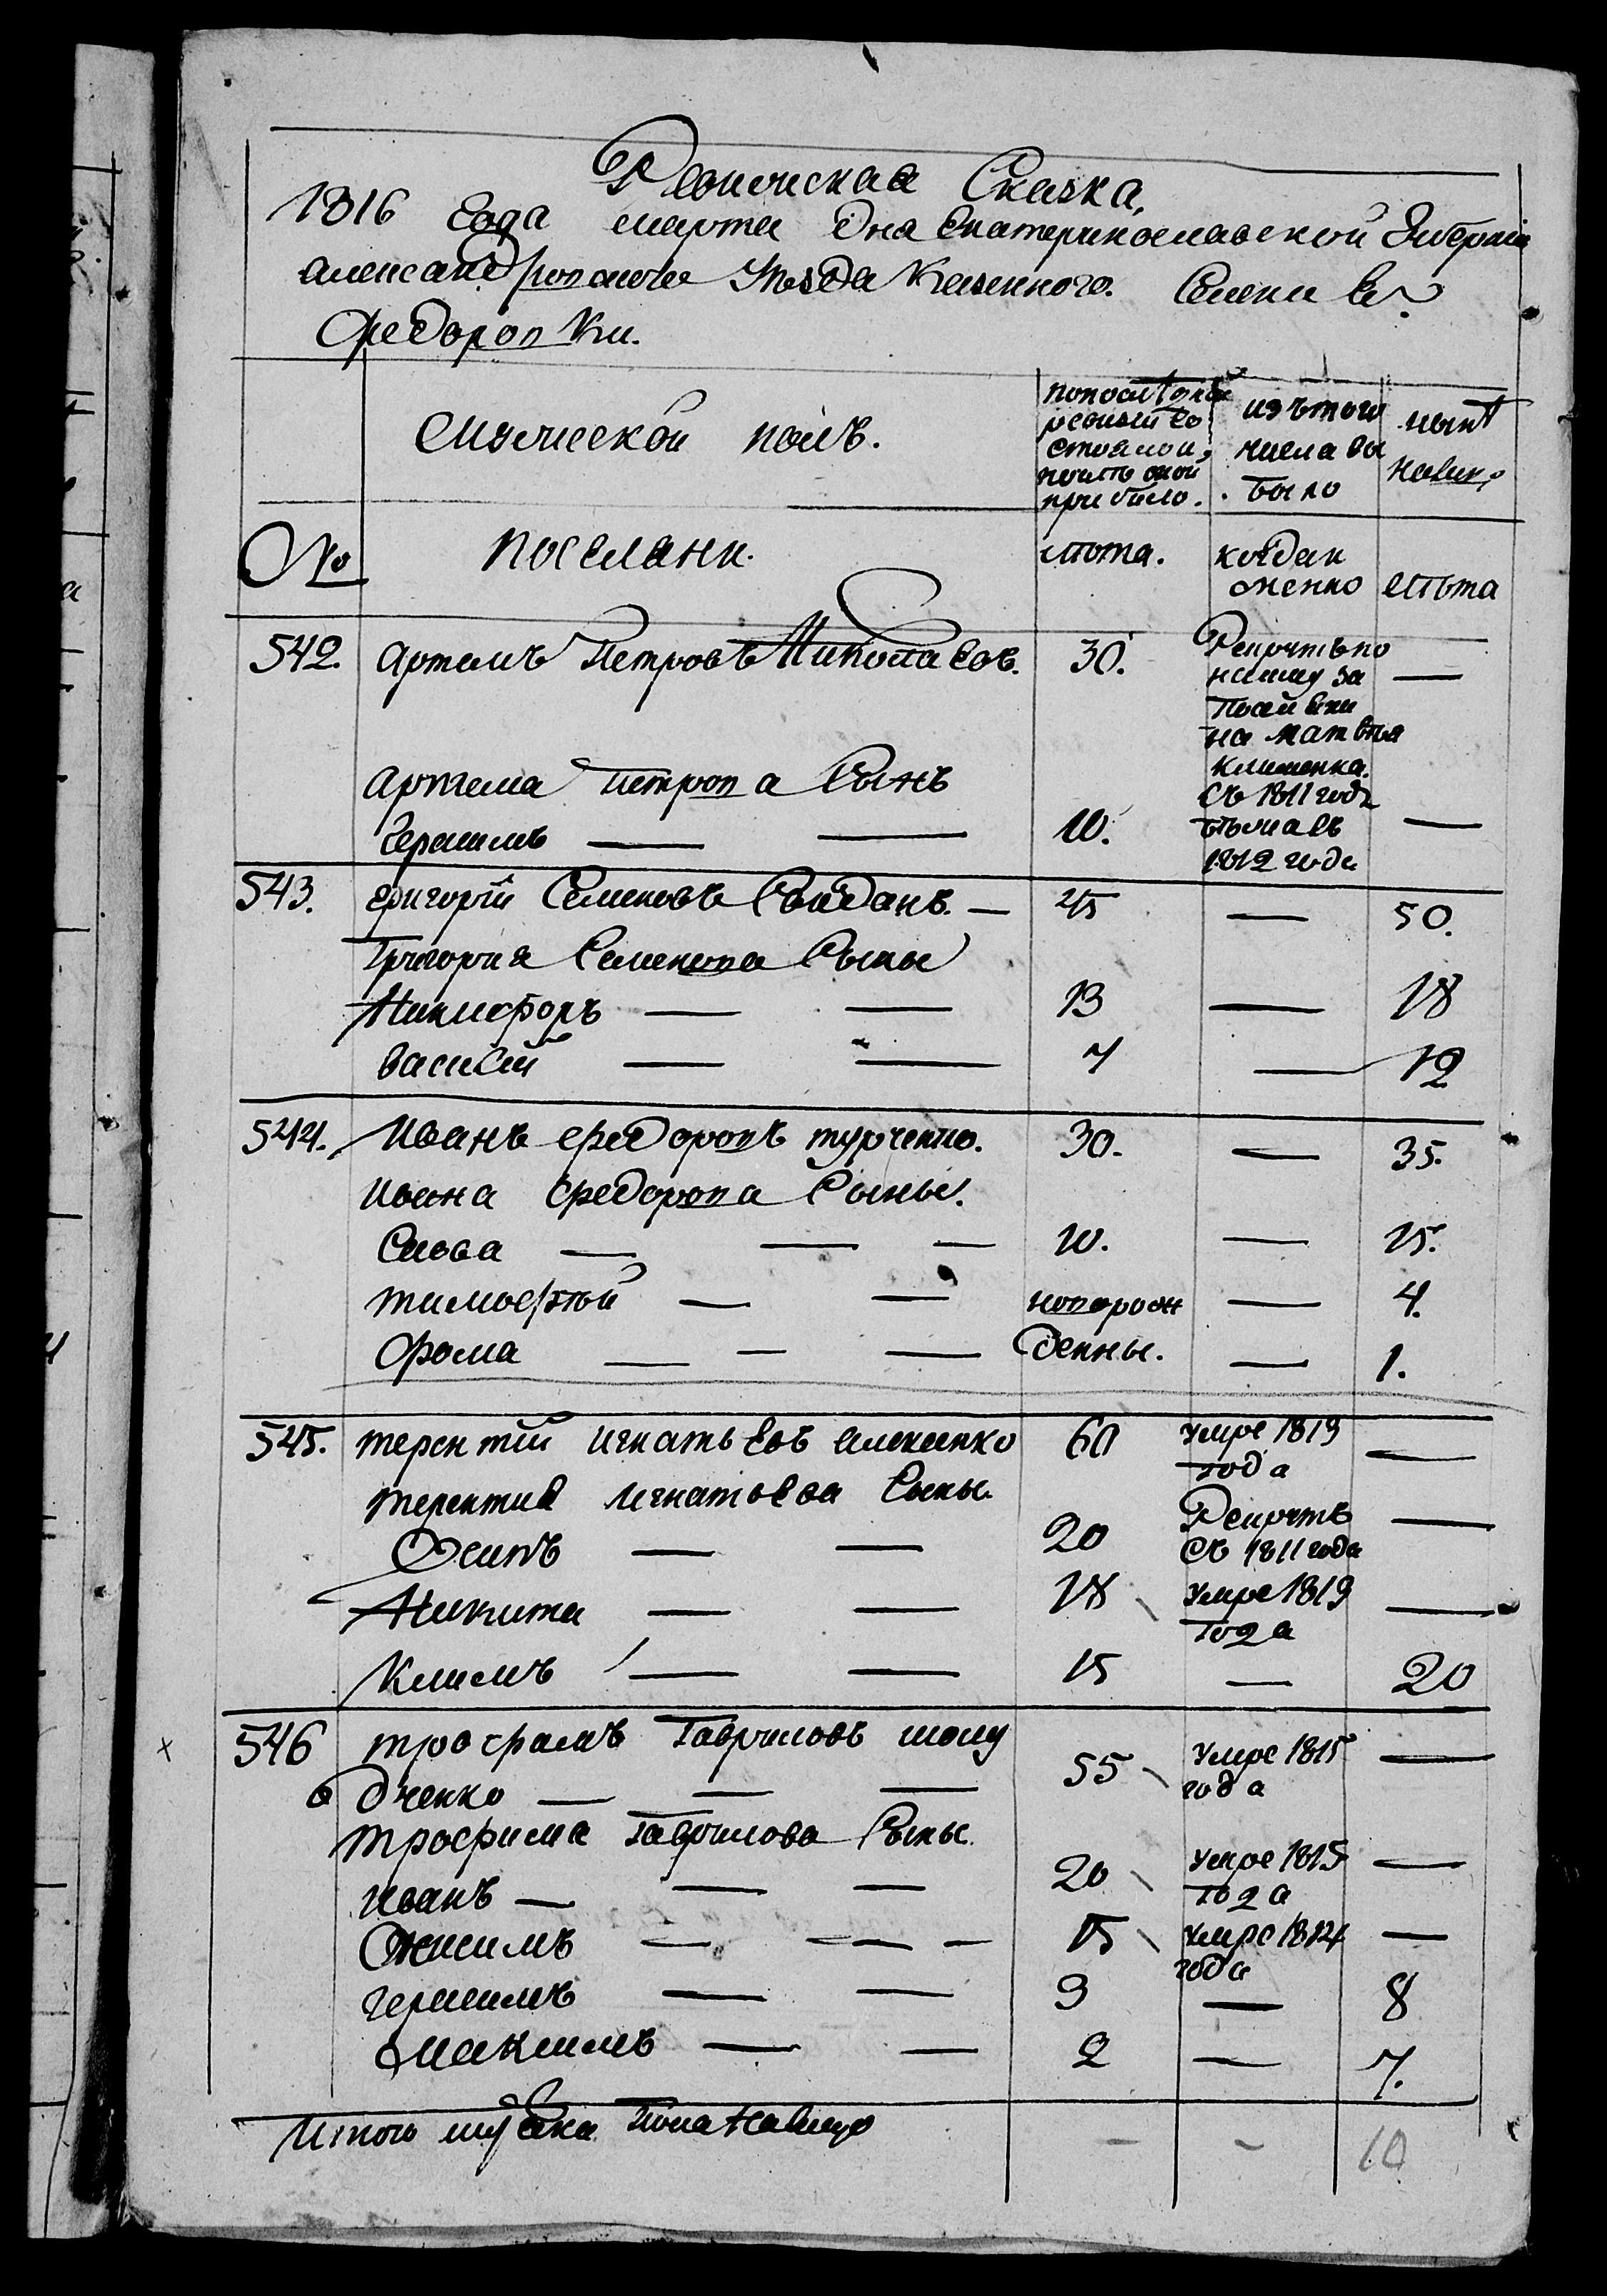 Ревижская Скаска,
1816 года марта дня Екатеринославской Губернiи
александровского Уезда Казенного. Селения
Федоровки.
мужеской полъ.
по последней
ревизии со
стояло и
после оной
прибыло.
изътого
числа вы
было
нынѣ
налицо
№
поселяни.
лѣта.
когда и
менно
лѣта
542. артемъ Петровъ Николаевъ. 30.
на матвея
Клименка.
съ 1811 года
артема петрова Сынъ
Герасимъ — — 10. —
1812 года
543. григорiй Семеновъ — 45 — 50.
Григория Семенова Сыны
Никифоръ — — 13 — 18
василiй — — 7 — 12
544. Иванъ федоровъ турченко. 30. — 35.
ивана федорова Сыны.
Савва — — — 10. — 15.
тимофѣй — — новорож — 4.
фома — — — денны. — 1.
545. терентiй игнатьевъ алексенко 60 умре 1813 —
года
терентия игнатьева Сыны.
Осипъ — — 20 —
съ 1811 года
Никита — — 18 умре 1813 —
года
Климъ — — 15 — 20
546 трофимъ Гавриловъ 55 умре 1815 —
дченко — — — года
трофима гаврилова Сыны.
иванъ — — — 20 умре 1815 —
года
Онисимъ — — — 15 умре 1814 —
года
герасимъ — — 3 — 8
максимъ — — 2 — 7.
Итого мужеска пола налицо — - 10